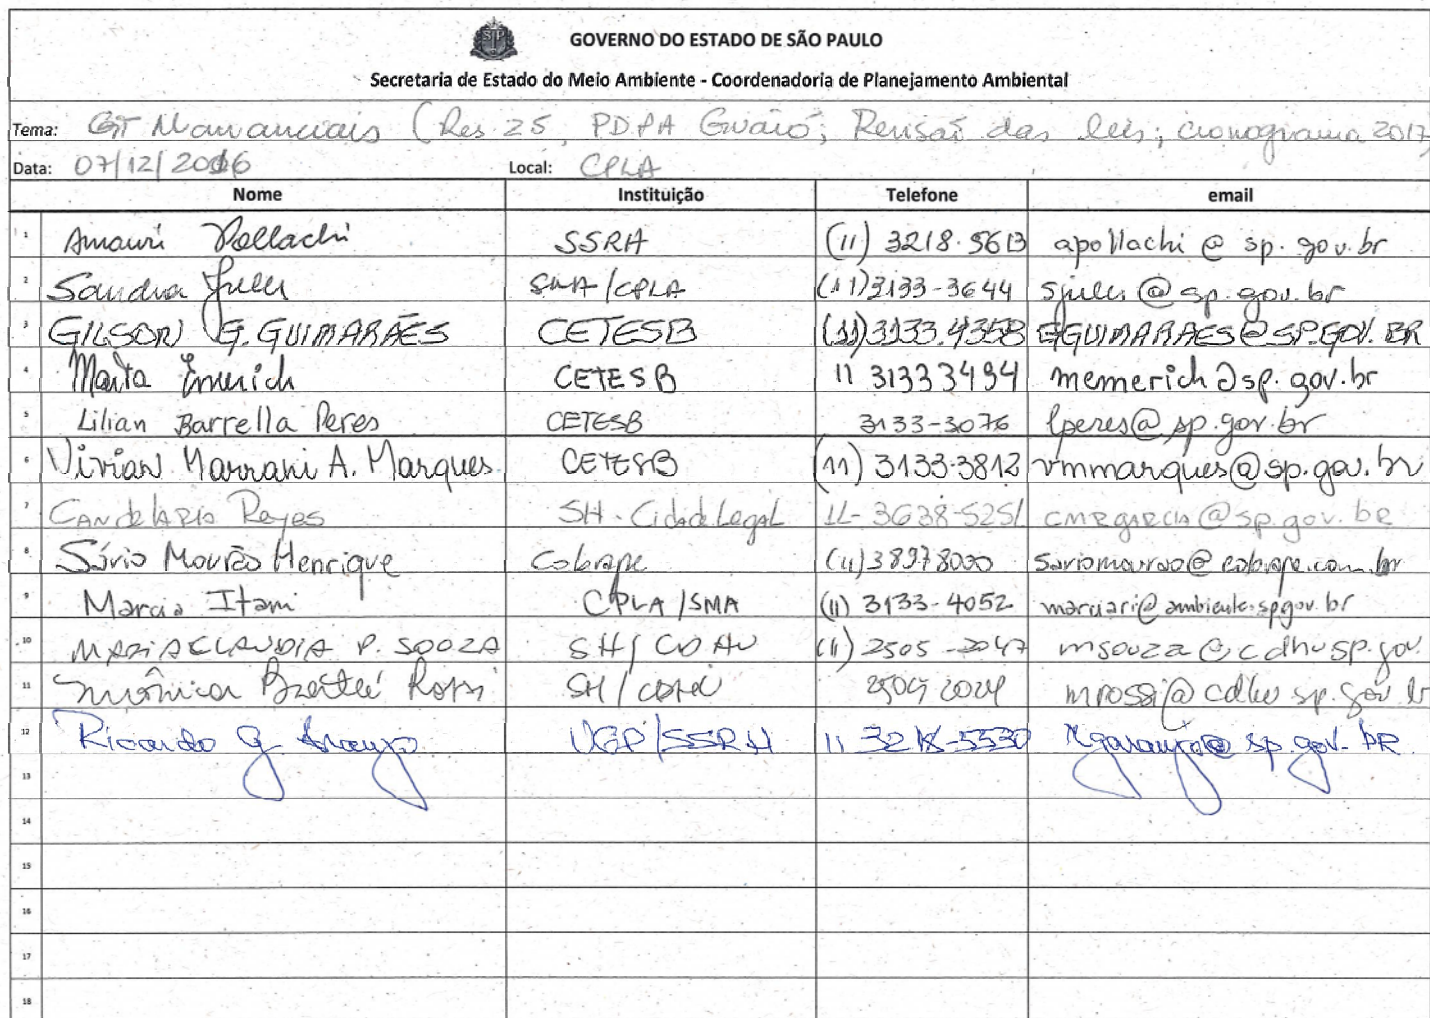 GOVERNO DO ESTADO DE SÃO PAULO
Secretaria de Estado do Meio Ambiente - Coordenadoria de Planejamento Ambiental
Tema: GT Mananciais (Res 25, PDPA Guaió; Revisão das leis; cronograma 2017
Data: 07/12/2016 Local: CPLA
Nome Instituição Telefone email
1 Amauri Pollachi SSRH (11) 3218-5613 apollachi@sp.gov.br
2 Sandra Jules SMA/CPLA (11)3133-3644 sjules@sp.gov.br
3 GILSON G. GUIMARÃES CETESB (11)3133.4358 GGUIMARAES@SP.GOV.BR
4 Marta Emerich CETESB 11 31333494 memerich@sp.gov.br
5 Lilian Barrella Peres CETESB 3133-3076 lperes@sp.gov.br
6 Vivian Marrani A. Marques CETESB (11) 3133-3812 vmmarques@sp.gov.br
7 Candelaria Reyes SH - Cidade Legal 11-3638-5251 cmrgarcia@sp.gov.br
8 Sávio Mourão Henrique Cobrape (11)38978000 saviomourao@cobrape.com.br
9 Marcia Itani CPLA/SMA (11) 3133-4052 @ambiente.sp.gov.br
10 MARIA CLAUDIA P. SOUZA SH/CDHU (11) 2505-2047 msouza@cdhu.sp.gov.
11 Mônica Rossi SH/CDHU 2505 2024 mrossi@cdhu.sp.gov.br
12 Ricardo G Araujo UGP/SSRH 11 3218-5530 rgaraujo@sp.gov.br
13
14
15
16
17
18